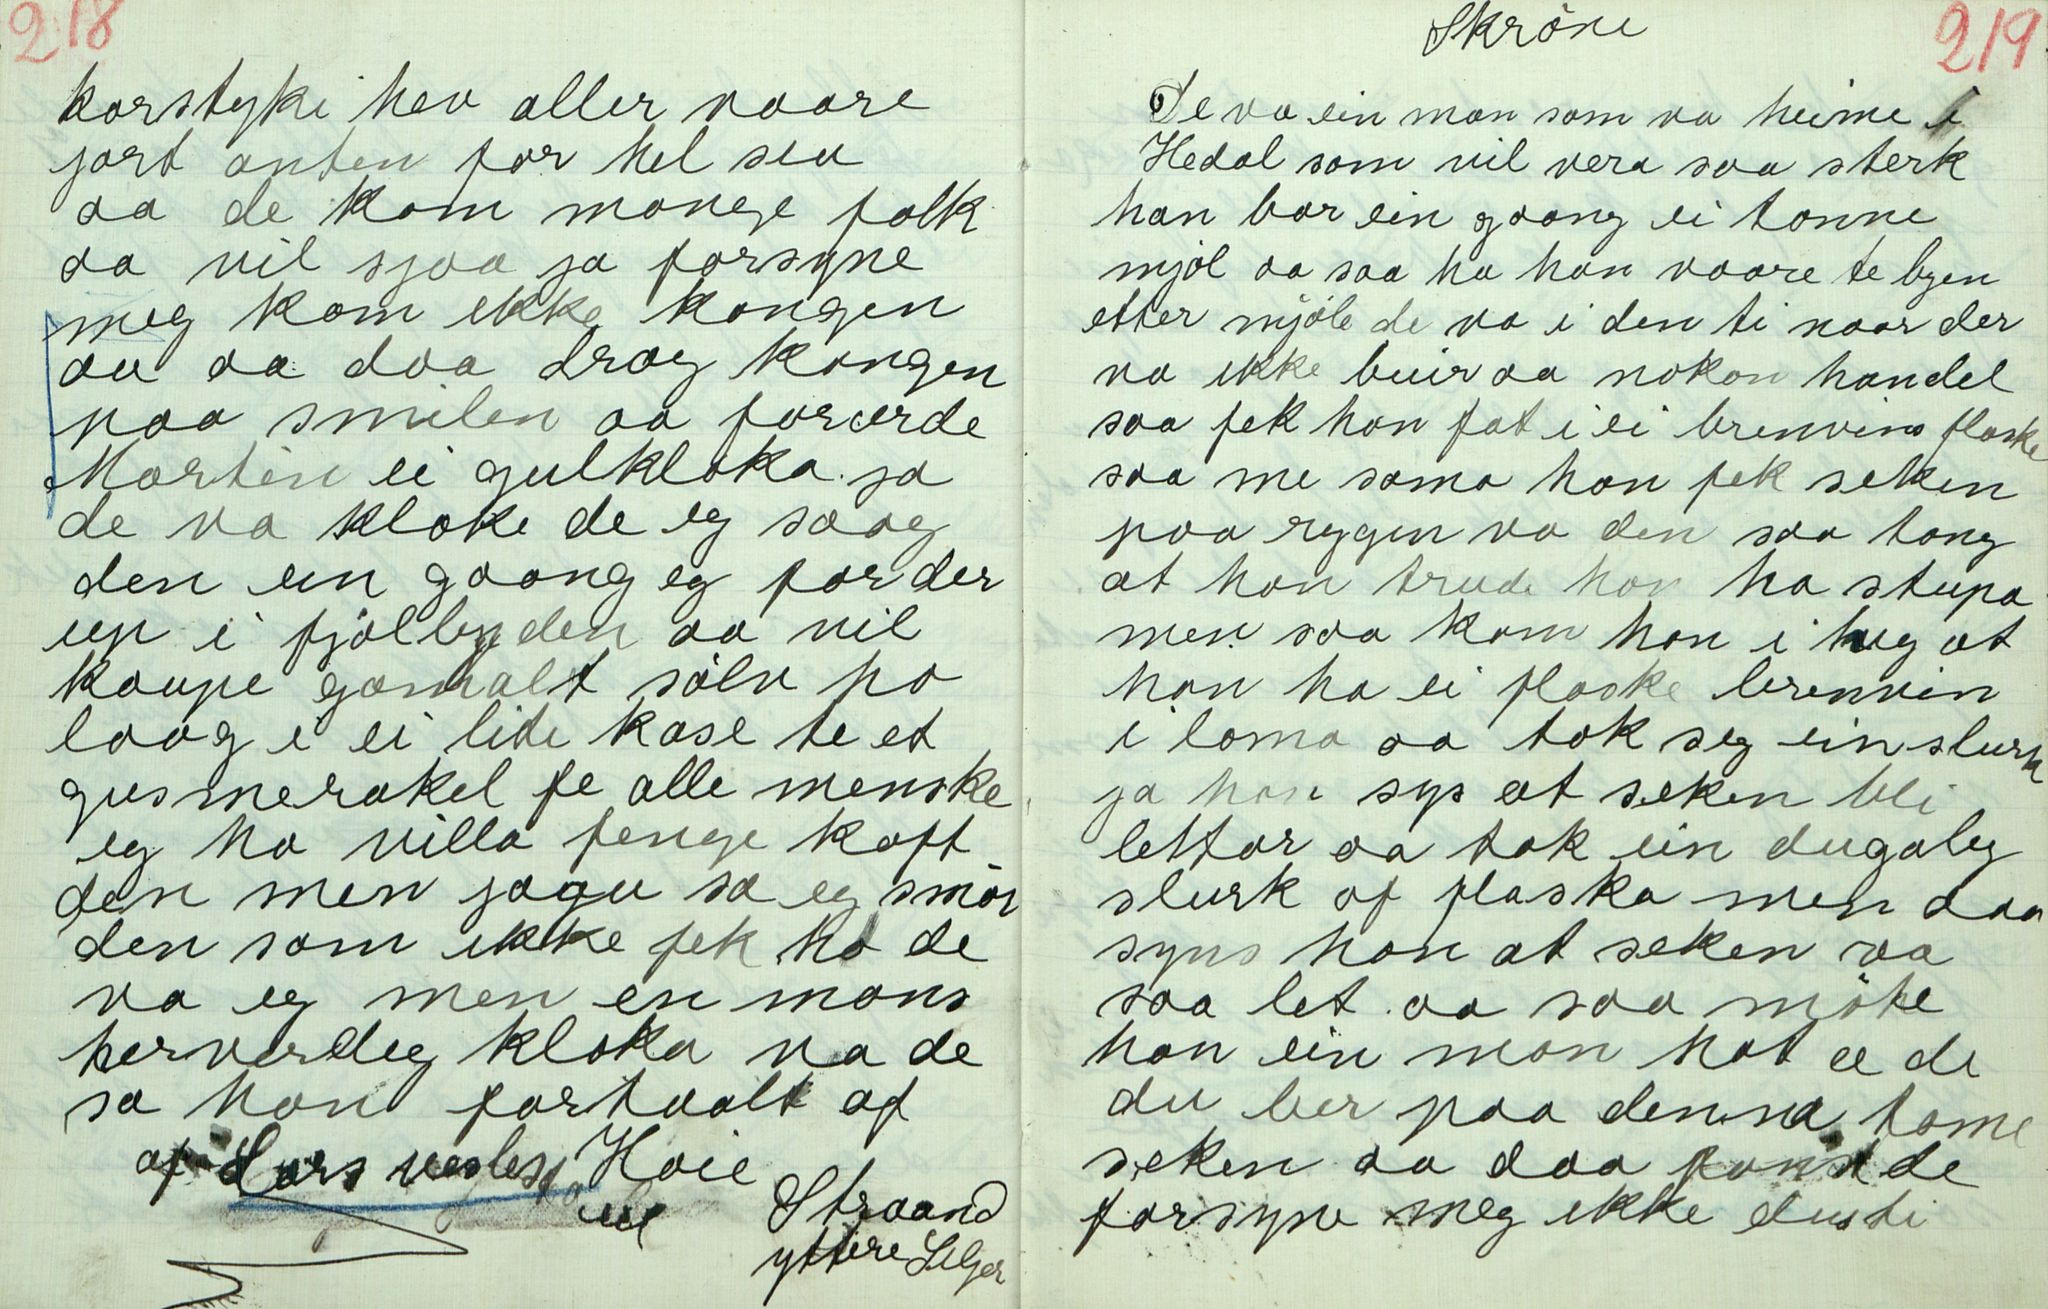 218
korstyki hev aller vaare
jort anten for hel seu
aa de kom mange folk
aa vil sjaa ja forsyne
meg kom ikke kongen
au aa daa drog kongen
paa smilen aa forærde
Marten ei gulkloka ja
de va kloke de eg saag
den ein goong eg for der
up i fjølbygden aa vil
koupe gamalt sølv ho
laag i ei lite kase te et
gusmerakel fe alle menske
eg ha villa fenge kaft
den men jagu sa eg smør
den som ikke fek ha de
va eg men en mans
herverdeg kloka va de
sa han fortaalt af
af Lars Hoie
Straand
yttere
219
Skrøne
De va ein man som va heime i
Hedal som vil vera saa sterk
han bar ein goong ei tonne
mjøl aa saa ha han vaare te byen
etter mjøle de va i den ti naar der
va ikke buir aa nokon handel
saa fek han fat i ei brenvins flaske
saa me sama han fek seken
paa ryggen va den saa tong
at han trude han ha stupa
men saa kom han i hug at
han ha ei flaske brenvin
i loma aa tok seg ein slurk
ja han sys at seken bli
lettar aa tok ein dugaleg
slurk af flaska men daa
syns han at seken va
saa let aa saa møte
han ein man hot æ de
du ber paa denna tome
seken aa daa fans de
forsyne meg ikke dusti